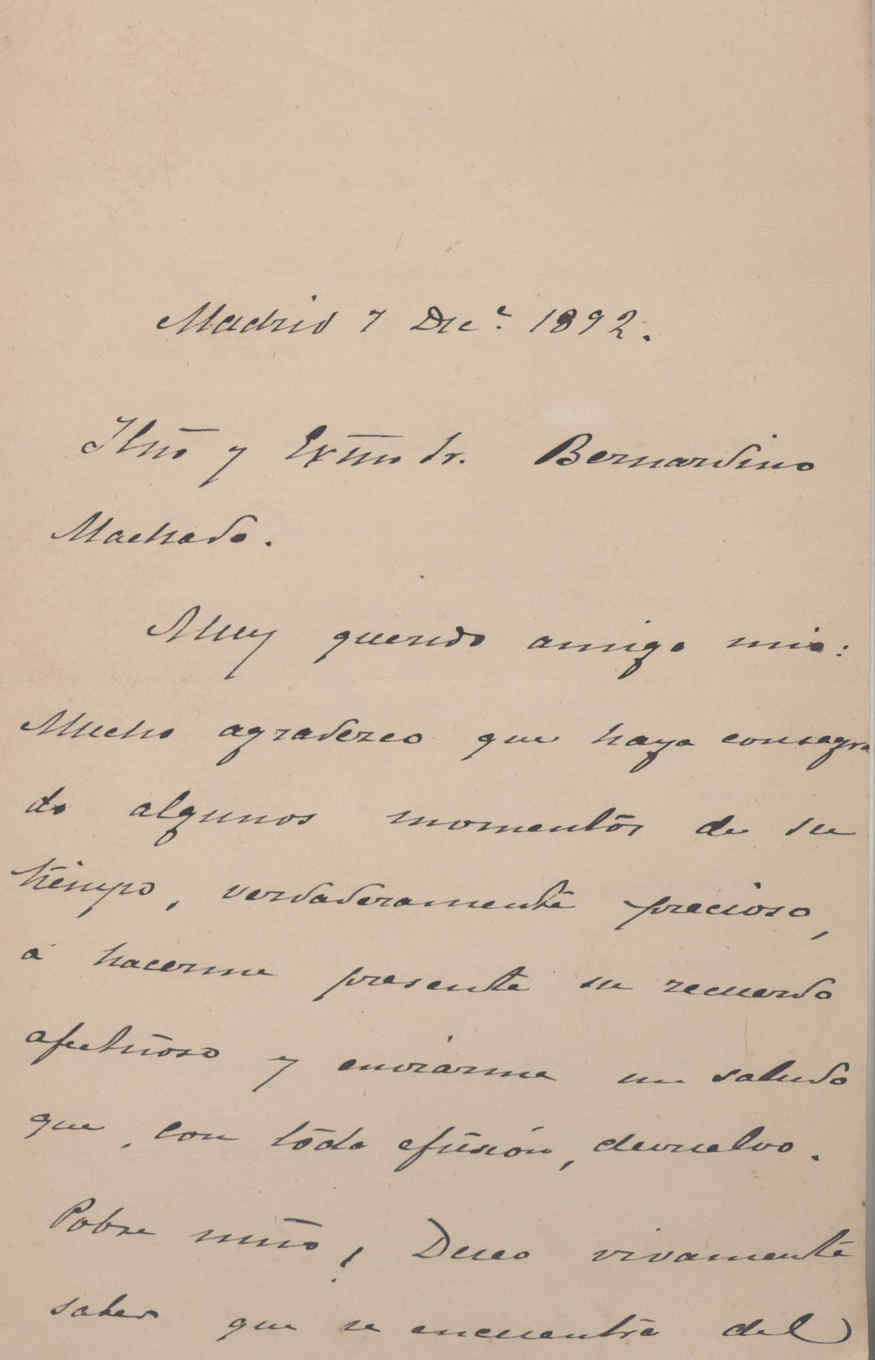 Madrid 7 Dic.e 1892.
Ilmo y Exmo Sr. Bernardino
Machado.
Muy querido amigo mio:
Mucho agradezco que haya consagra
do algunos momentos de su
tiempo, verdaderamente precioso,
á hacerme presente su recuerdo
afectuoso y enviarme un saludo
que, con toda efusión, devuelvo.
Pobre niño! Deseo vivamente
saber que se encuentra del